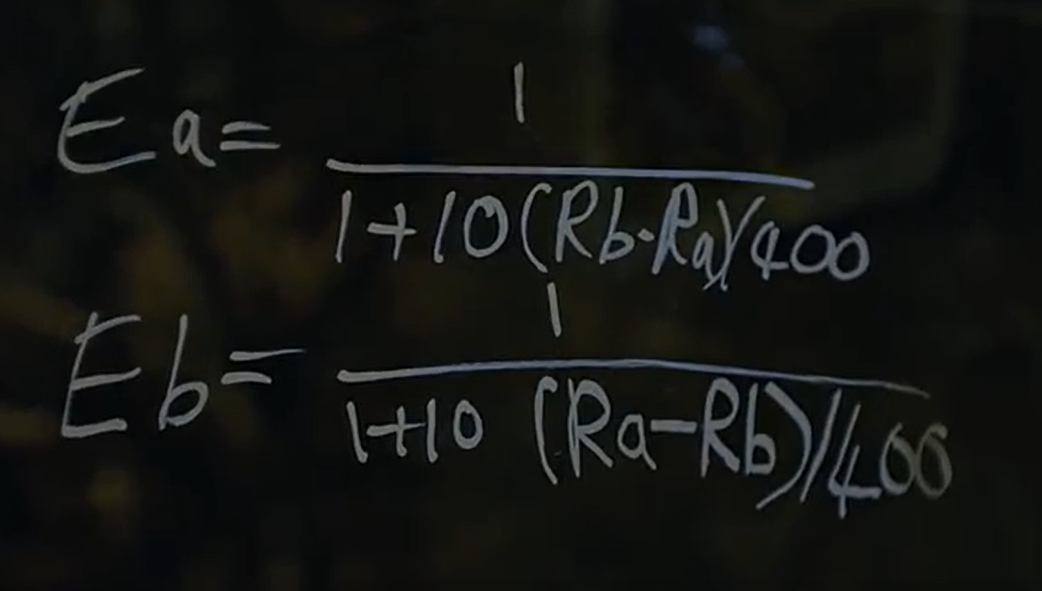 Ea= 1
1+10(Rb-Ra)/400
Eb= 1
1+10 (Ra-Rb)/400